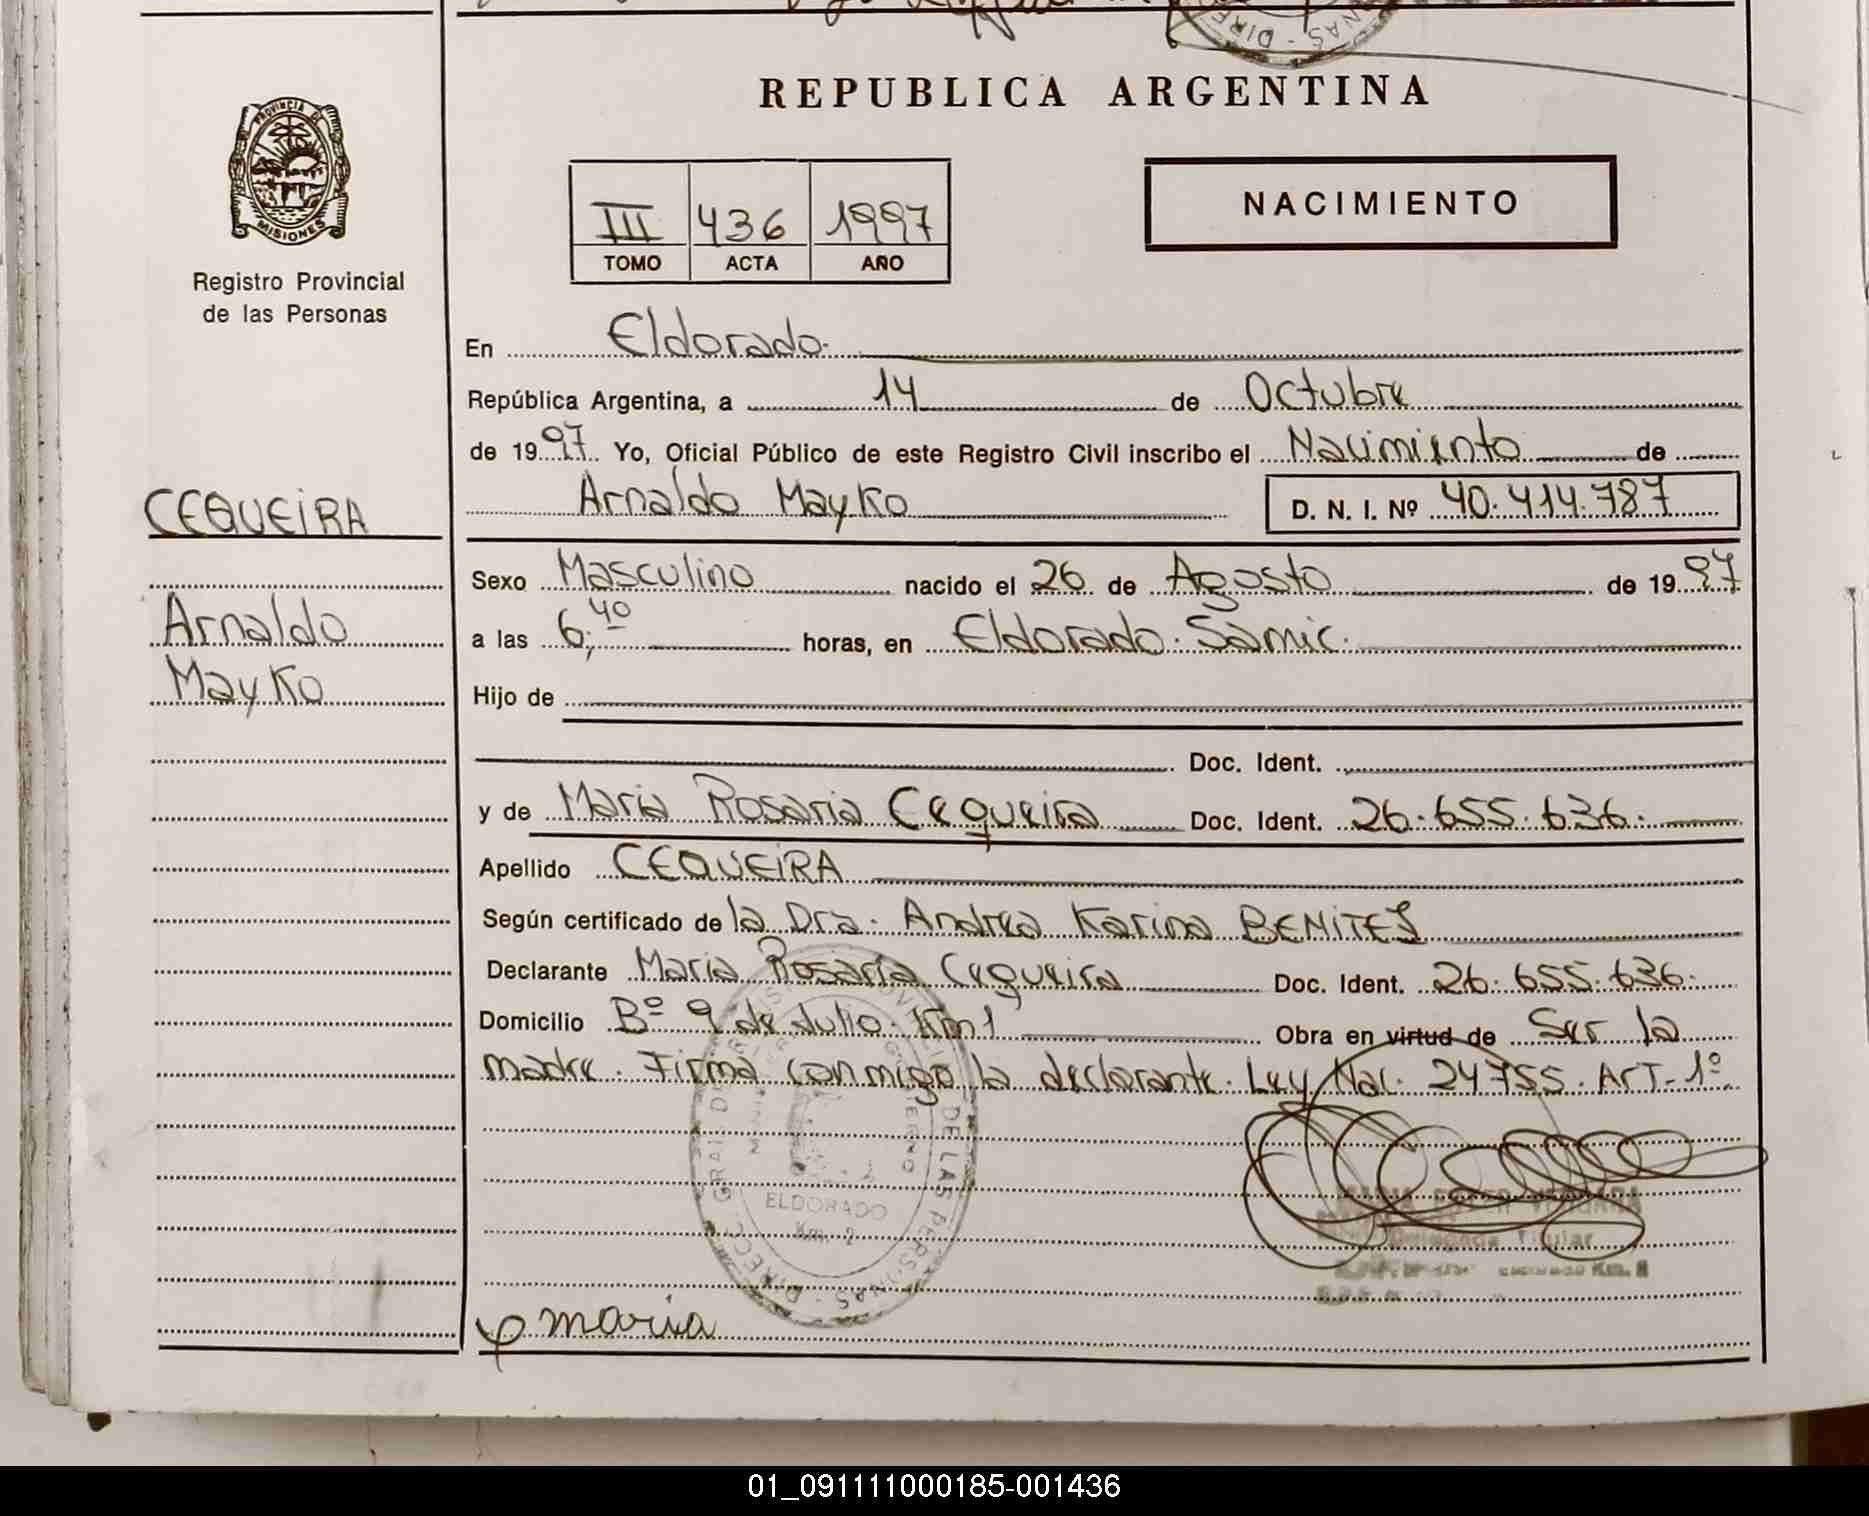 REPUBLICA ARGENTINA
PROVINCIA DE
MISIONES
Registro Provincial
de las Personas
III 436 1997
TOMO ACTA AÑO
NACIMIENTO
En Eldorado.
República Argentina, a 14 de Octubre
de 1997. Yo, Oficial Público de este Registro Civil inscribo el Nacimiento de
Arnaldo Mayko D. N. I. Nº 40.414.787
CEQUEIRA
Arnaldo
Mayko
Sexo Masculino nacido el 26 de Agosto de 1997
a las 6,40 horas, en Eldorado. Samic.
Hijo de
Doc. Ident.
y de Maria Rosaria Cequeira Doc. Ident. 26.655.636.
Apellido CEQUEIRA
Según certificado de la Dra. Andrea Karina BENITES
Declarante Maria Rosaria Cequeira Doc. Ident. 26.655.636.
Domicilio Bº 9 de Julio. Km 1 Obra en virtud de Ser la
madre. Firma conmigo la declarante. Ley Nac. 24755. Art. 1º
DE LAS PERSONAS
ELDORADO
Km. 2
Titular
maria
01_091111000185-001436